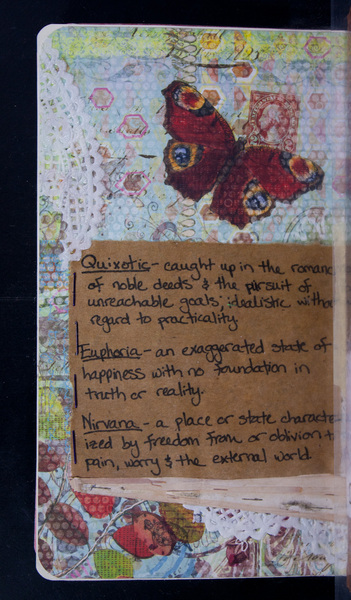 Quixotic - caught up in the romanc
of noble deeds & the pursuit of
unreachable goals; idealistic witho
regard to practicality.
Euphoria - an exaggerated state of
happiness with no foundation in
truth or reality.
Nirvana - a place or state characte
ized by freedom from or oblivion t
pain, worry & the external world.